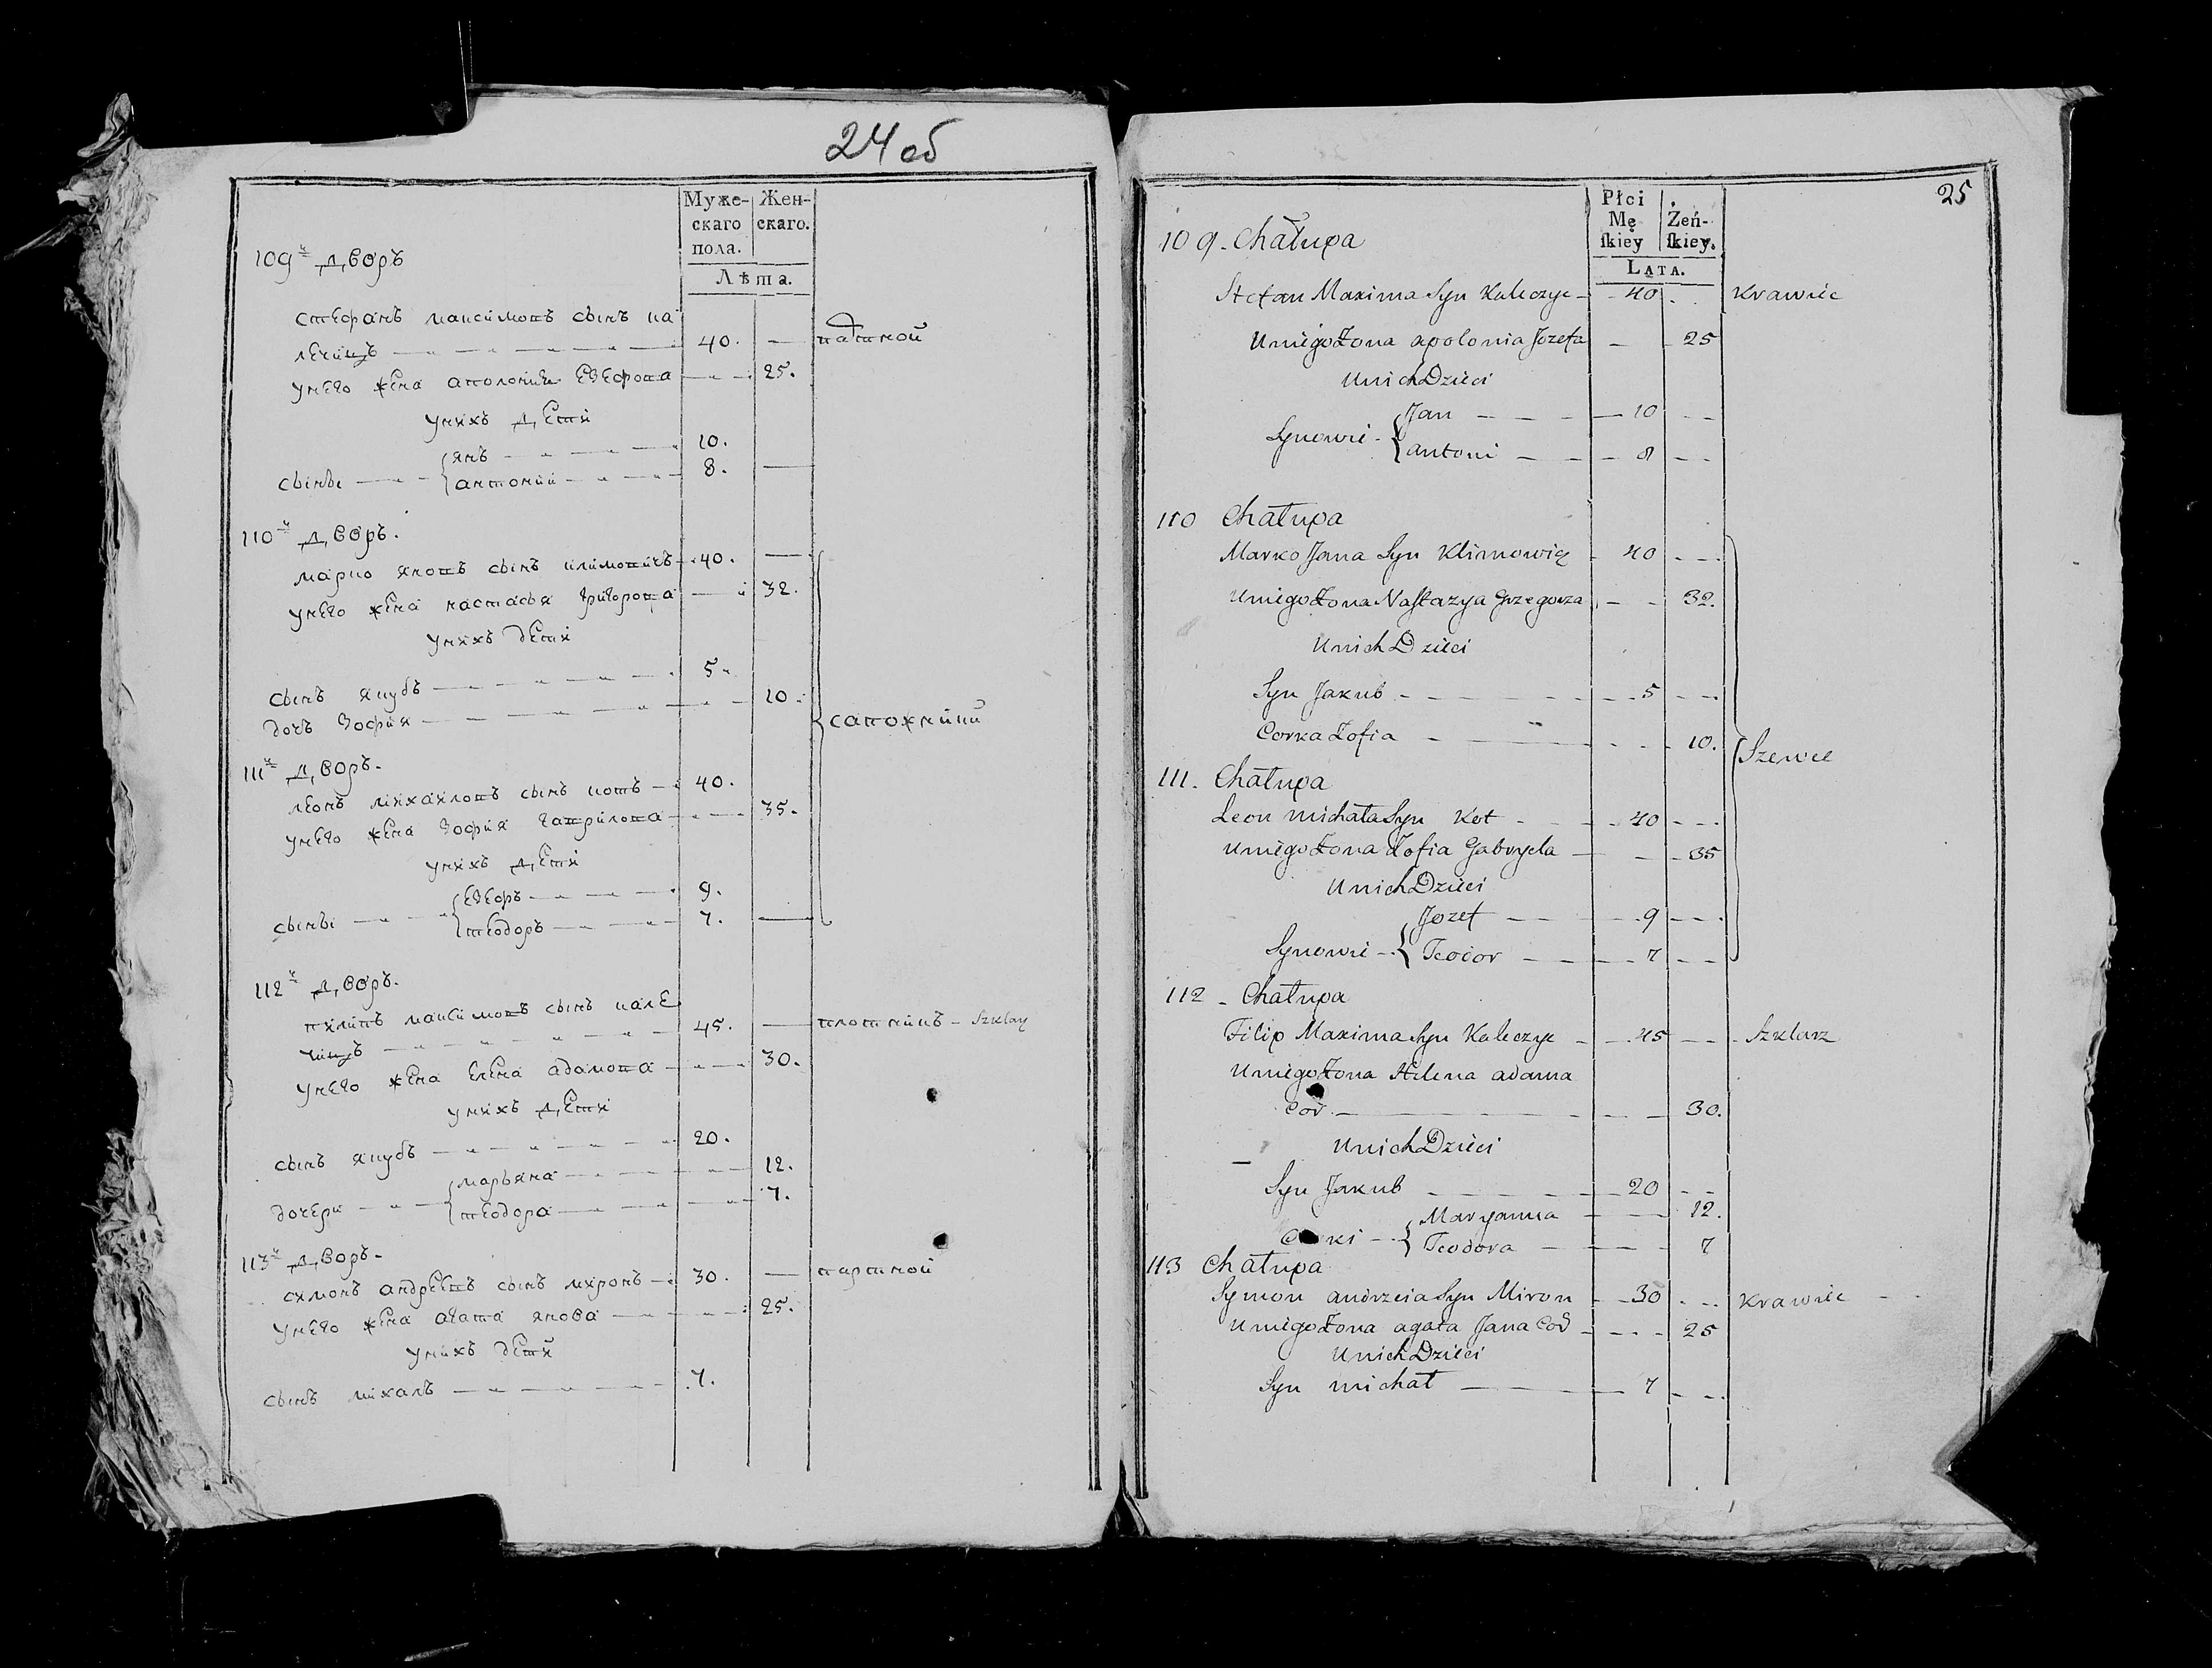 24 об
Муже- Жен-
скаго скаго.
пола.
Лѣта.
109й дворъ
стефанъ максимовъ сынъ ка
лечицъ 40. —
унего жена аполония езефова 25.
унихъ дети
янъ 10.
сыны антоний 8. —
110й дворъ.
марко яновъ сынъ климовичъ 40. —
унего жена настасья григорова 32.
унихъ дети
сынъ якубъ 5
дочъ зофия 10
сапожники
111й дворъ.
леонъ михайловъ сынъ котъ 40.
унего жена зофия гаврилова 35.
унихъ дети
езефъ 9.
сыны теодоръ 7. —
112й дворъ.
пилипъ максимовъ сынъ кале
чицъ 45. — плотникъ - Szklarz
унего жена елена адамова 30.
унихъ дети
сынъ якубъ 20.
марьяна 12.
дочери теодора 7.
113й дворъ.
симонъ андреевъ сынъ миронъ 30. — партной
унего жена агата янова 25.
унихъ дети
сынъ михалъ 7.
25
Płci
Mę Żeń-
ſkiey ſkiey.
LATA.
109. Chałupa
Stefan Maxima Syn Kaleczyc 40 Krawiec
Uniego Żona apolonia Jozefa 25
Unich Dzieci
Jan 10
Synowie antoni 8
110 Chałupa
Marko Jana Syn Klimowicz 40
Uniego Żona Nastazya Grzegorza 32.
Unich Dzieci
Syn Jakub 5
Corka Zofia 10.
Szewce
111. Chałupa
Leon michała Syn Kot 40
Uniego Żona Zofia Gabryela 35
Unich Dzieci
Jozef 9
Synowie Teodor 7
112 - Chałupa
Filip Maxima Syn Kaleczyc 45 Szklarz
Uniego Żona Helena adama
Cor. 30.
Unich Dzieci
Syn Jakub 20
Maryanna 12.
Corki Teodora 7
113 Chałupa
Symon andrzeia Syn Miron 30 Krawiec
Uniego Żona agata Jana Cor 25
Unich Dzieci
Syn michał 7